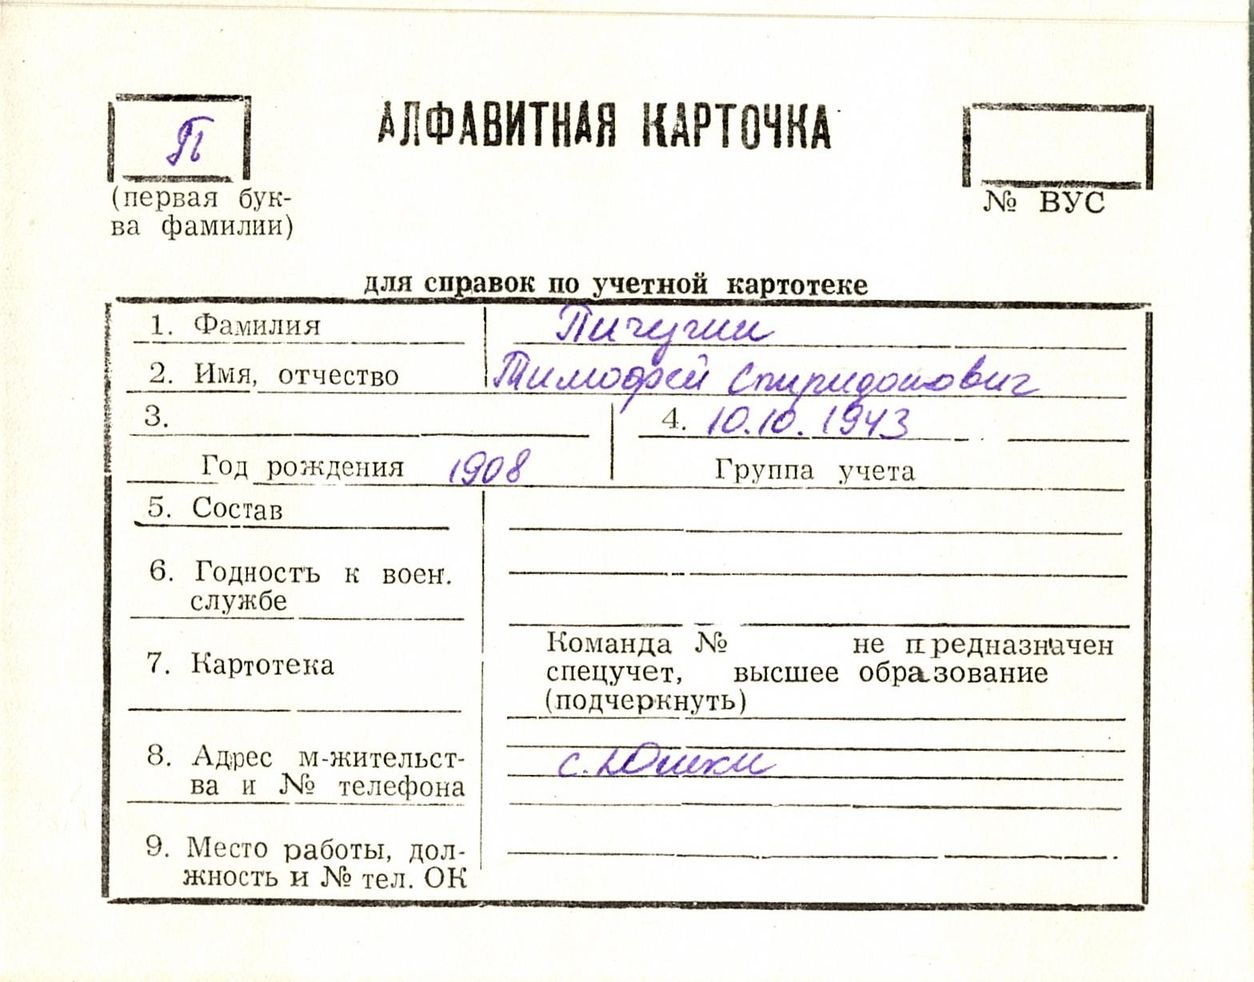 П
АЛФАВИТНАЯ КАРТОЧКА
(первая бук-
ва фамилии)
№ ВУС
для справок по учетной картотеке
1. Фамилия Пичугин
2. Имя, отчество Тимофей Спиридонович
3. 4. 10.10.1943
Год рождения 1908 Группа учета
5. Состав
6. Годность к воен.
службе
7. Картотека
Команда № не предназначен
спецучет, высшее образование
(подчеркнуть)
8. Адрес м-жительст-
ва и № телефона
с. Юшки
9. Место работы, дол-
жность и № тел. ОК